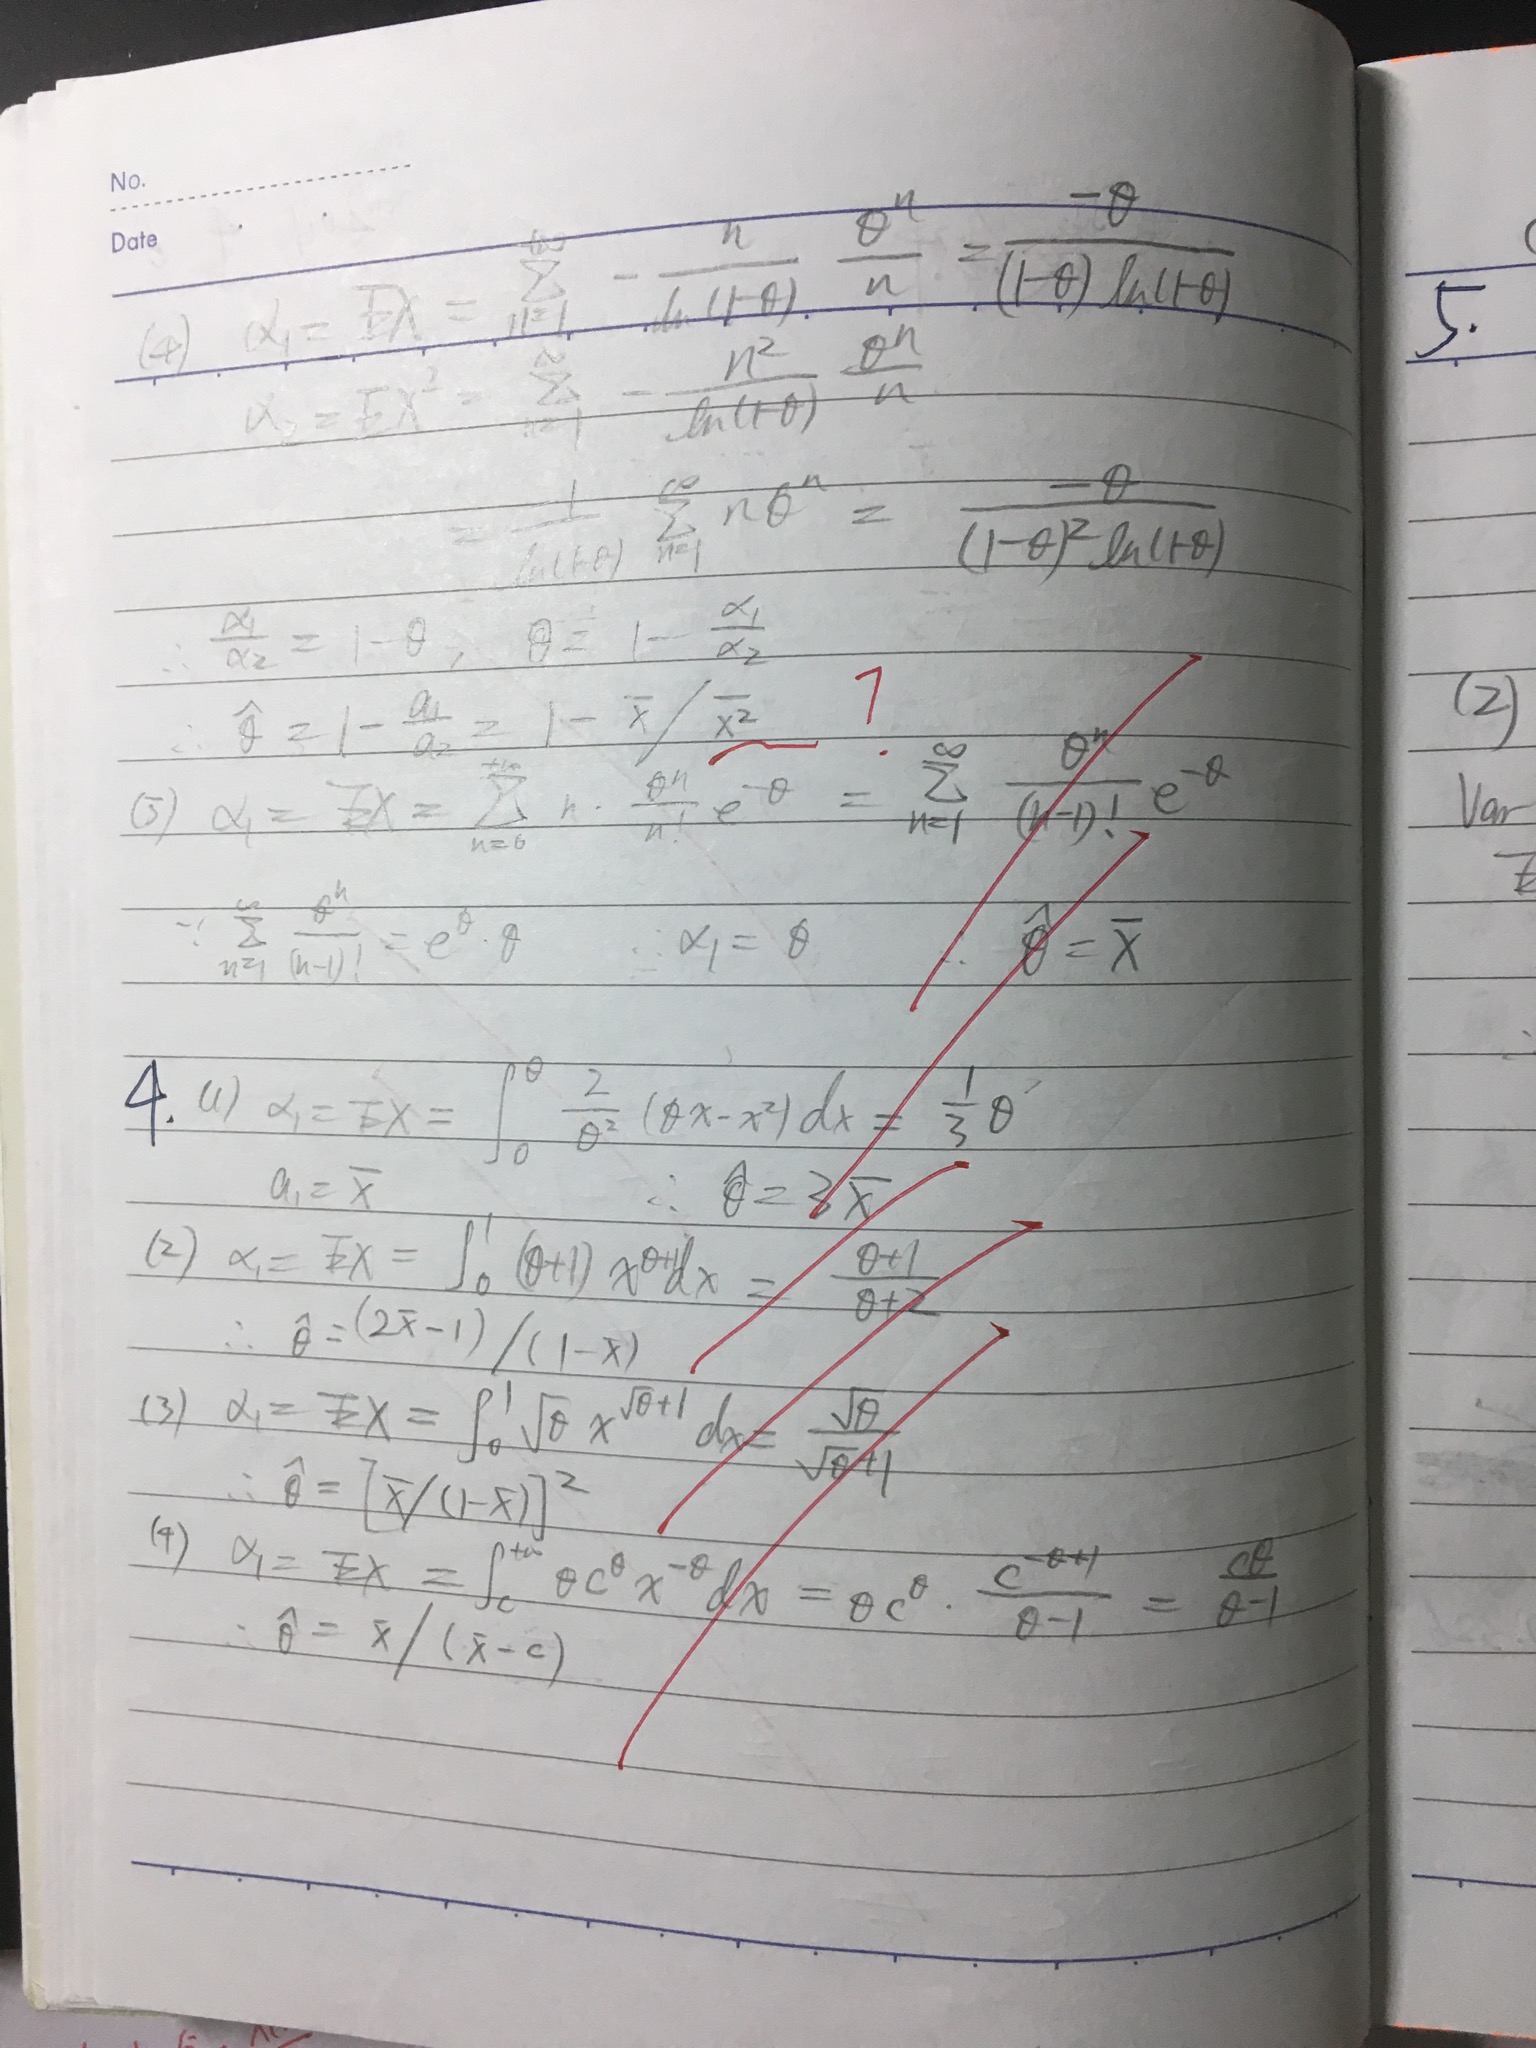 No.
Date
(4) α₁ = EX = \sum_{n=1}^{+∞} - \frac{n}{ln(1-θ)} \frac{θ^n}{n} = \frac{-θ}{(1-θ) ln(1-θ)}
α₂ = EX² = \sum_{n=1}^{∞} - \frac{n²}{ln(1-θ)} \frac{θ^n}{n}
= \frac{1}{ln(1-θ)} \sum_{n=1}^{∞} nθ^n = \frac{-θ}{(1-θ)² ln(1-θ)}
∴ \frac{α₁}{α₂} = 1-θ, θ = 1 - \frac{α₁}{α₂}
∴ \hat{θ} = 1 - \frac{a₁}{a₂} = 1 - \bar{x} / \bar{x²} ?
(5) α₁ = EX = \sum_{n=0}^{+∞} n · \frac{θ^n}{n!} e^{-θ} = \sum_{n=1}^{∞} \frac{θ^n}{(n-1)!} e^{-θ}
∵ \sum_{n=1}^{∞} \frac{θ^n}{(n-1)!} = e^θ · θ ∴ α₁ = θ ∴ \hat{θ} = \bar{x}
4. (1) α₁ = EX = \int_0^θ \frac{2}{θ²} (θx - x²) dx = \frac{1}{3} θ
a₁ = \bar{x} ∴ \hat{θ} = 3\bar{x}
(2) α₁ = EX = \int_0^1 (θ+1) x^{θ+1} dx = \frac{θ+1}{θ+2}
∴ \hat{θ} = (2\bar{x}-1) / (1-\bar{x})
(3) α₁ = EX = \int_0^1 \sqrt{θ} x^{\sqrt{θ}+1} dx = \frac{\sqrt{θ}}{\sqrt{θ}+1}
∴ \hat{θ} = [\bar{x} / (1-\bar{x})]²
(4) α₁ = EX = \int_c^{+∞} θc^θ x^{-θ} dx = θc^θ · \frac{c^{-θ+1}}{θ-1} = \frac{cθ}{θ-1}
∴ \hat{θ} = \bar{x} / (\bar{x}-c)
5.
(2)
Var
E